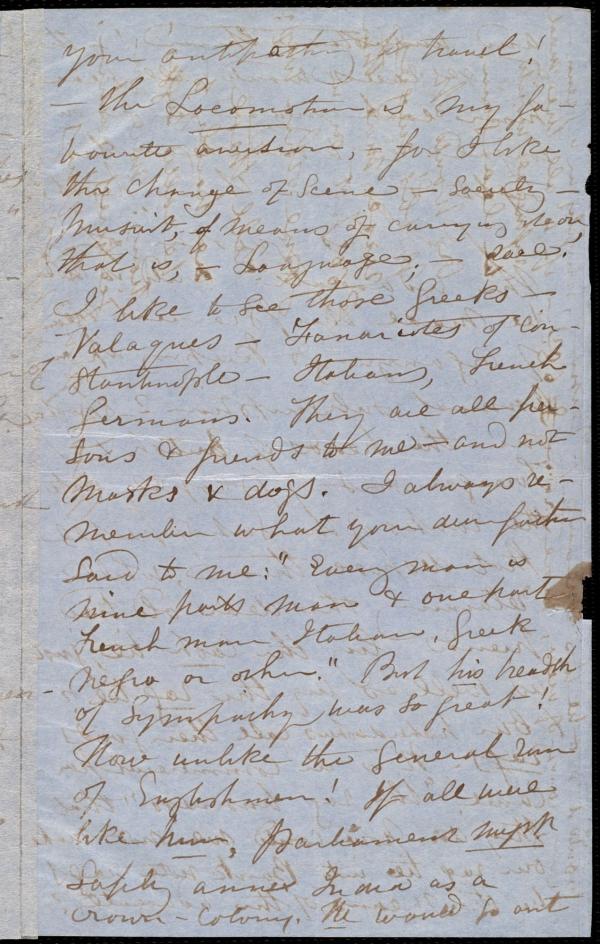 your antipathy to travel!
— the Locomotion is my fa-
vourite aversion, — for I like
the change of Scene — Society —
Pursuit, & means of carrying it on,
that is, — Language; —
I like to see those Greeks —
Valaques — Fanariotes of Con-
stantinople — Italians, French
Germans. They are all per-
sons & friends to me — and not
Masks & dogs. I always re-
member what your dear father
said to me: "Every man is
nine parts man & one part
French man, Italian, Greek
Negro or other." But his breadth
of Sympathy was so great!
How unlike the general run
of Englishmen! If all were
like him, Parliament might
safely annex India as a
Crown-Colony. He would go out